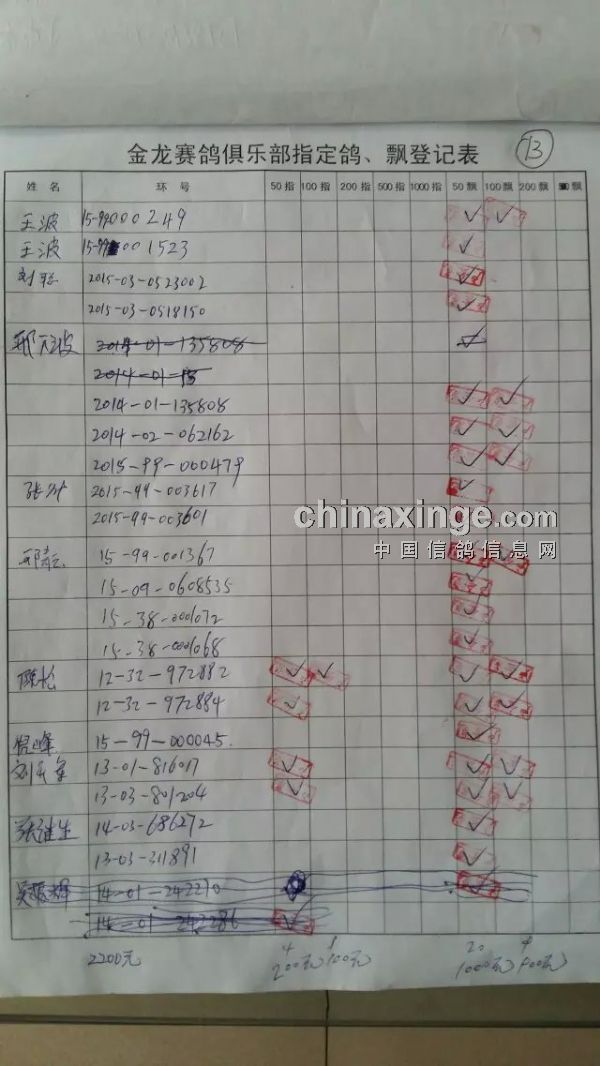 金龙赛鸽俱乐部指定鸽、飘登记表 13
姓名 环号 50指 100指 200指 500指 1000指 50飘 100飘 200飘 飘
王波 15-99000249 ✓ ✓
王波 15-99001523 ✓
2015-03-0523002 ✓
2015-03-0518150 ✓
2014-01-135808 ✓
2014-01-15
2014-01-135808 ✓ ✓
2014-02-062162 ✓ ✓
2015-99-000479 ✓ ✓
2015-99-003617 ✓
2015-99-003601
chinaxinge.com
中国信鸽信息网
15-99-001367 ✓ ✓
15-09-0608535 ✓
15-38-0001072 ✓
15-38-0001068 ✓
陈松 12-32-972882 ✓ ✓ ✓ ✓
12-32-972884 ✓ ✓ ✓
15-99-000045. ✓
13-01-816017 ✓ ✓ ✓
13-03-801204 ✓ ✓ ✓
张维生 14-03-686272 ✓
13-03-311891 ✓
14-01-242270 ✓
14-01-242286 ✓
2200元 4 200元 1 100元 20 1000元 9 900元